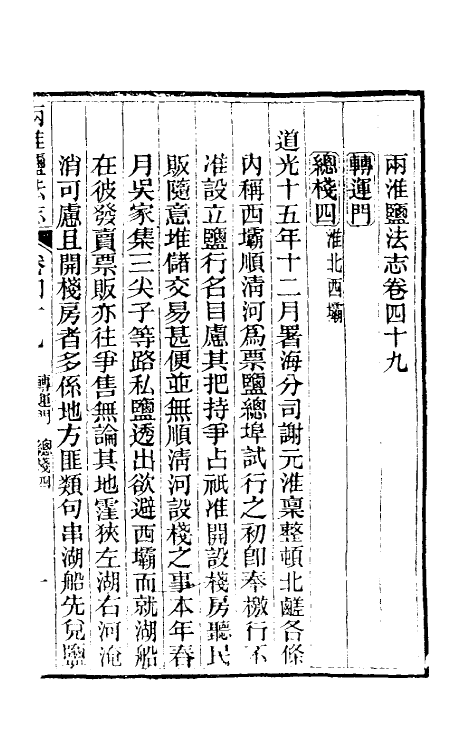 兩淮鹽法志卷四十九
轉運門
總棧四 淮北西壩
道光十五年十二月署海分司謝元淮稟整頓北鹺各條
內稱西壩順淸河爲票鹽總埠試行之初卽奉檄行不
准設立鹽行名目慮其把持爭占祇准開設棧房聽民
販隨意堆儲交易甚便並無順淸河設棧之事本年春
月吳家集三尖子等路私鹽透出欲避西壩而就湖船
在彼發賣票販亦往爭售無論其地窪狹左湖右河淹
消可慮且開棧房者多係地方匪類句串湖船先兌鹽
兩淮鹽法志 卷四十九 轉運門 總棧四 一